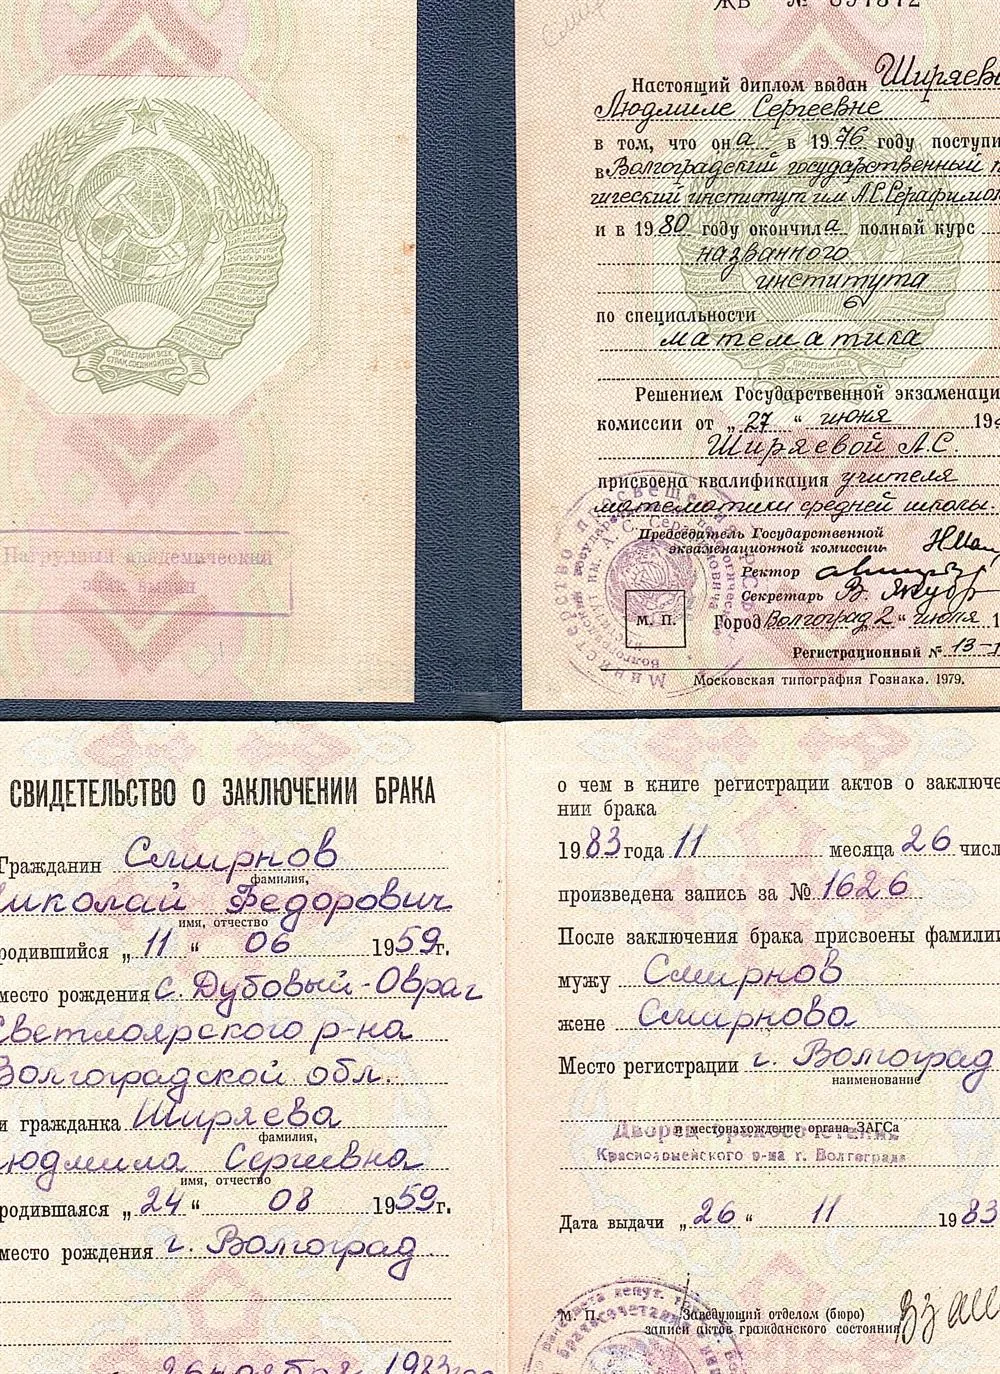 ЖВ № 697372
Настоящий диплом выдан Ширяевой
Людмиле Сергеевне
в том, что она в 1976 году поступи
в Волгоградский государственный п
гический институт им А.С.Серафимов
и в 1980 году окончила полный курс
названного
института
по специальности
математика
Решением Государственной экзаменаци
комиссии от „27“ июня 19
Ширяевой Л.С.
присвоена квалификация учителя
математики средней школы.
Председатель Государственной
экзаменационной комиссии
Ректор
Секретарь
М. П.
Город Волгоград „2“ июля 1
Регистрационный № 13-
Московская типография Гознака. 1979.
ПРОЛЕТАРИИ ВСЕХ
СТРАН, СОЕДИНЯЙТЕСЬ!
Нагрудный академический
знак выдан
СВИДЕТЕЛЬСТВО О ЗАКЛЮЧЕНИИ БРАКА
Гражданин Смирнов
фамилия,
иколай Федорович
имя, отчество
родившийся „11“ 06 1959г.
место рождения с. Дубовый-Овраг
Светлоярского р-на
Волгоградской обл.
и гражданка Ширяева
фамилия,
юдмила Сергеевна
имя, отчество
родившаяся „24“ 08 1959г.
место рождения г. Волгоград
26 ноября 1983
о чем в книге регистрации актов о заключе
нии брака
1983 года 11 месяца 26 числ
произведена запись за № 1626
После заключения брака присвоены фамилии
мужу Смирнов
жене Смирнова
Место регистрации г. Волгоград
наименование
и местонахождение органа ЗАГСа
Дворец бракосочетания
Красноармейского р-на г. Волгограда
Дата выдачи „26“ 11 1983
М. П. Заведующий отделом (бюро)
записи актов гражданского состояния